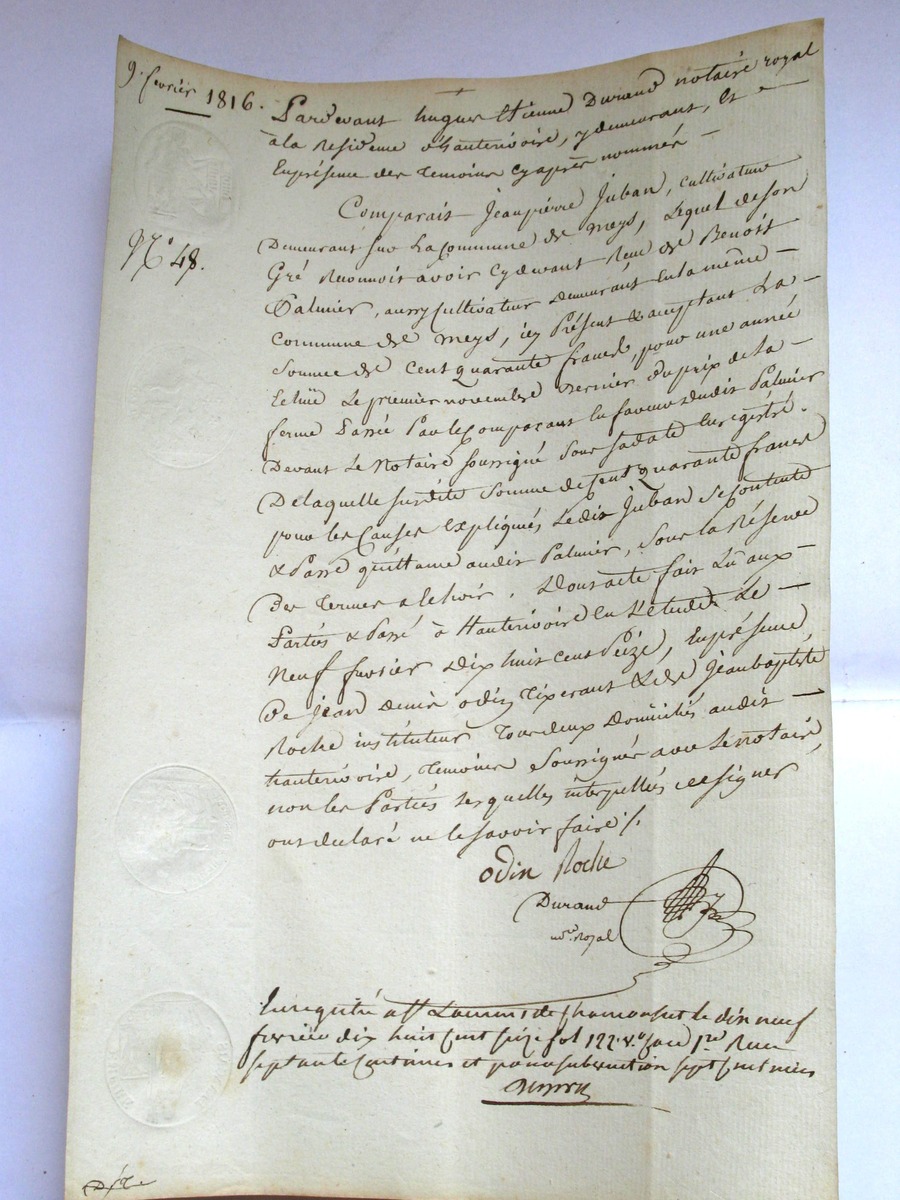 9. fevrier 1816.
Pardevant hugues Etienne Durand notaire royal
à la Residence d'hauterivoire, y demeurant, Et
En présence des temoins cy après nommés
N.° 48.
Comparait Jean pierre Juban, cultivateur
Demeurant sur La Commune de meys, Lequel de son
Gré Reconnoit avoir cy devant Reçu de Benoit
Palmier, aussy Cultivateur demeurant En la même
Commune de meys, icy Présent & acceptant La
Somme de Cent quarante francs, pour une année
Echüe Le premier novembre Dernier du prix de la
ferme Passée Par le Comparant En faveur dudit Palmier
Devant Le Notaire soussigné sous sa date Enregistré.
De laquelle susdite Somme de Cent quarante francs
pour les Causes Expliqués, Ledit Juban Se Contente
& Passe quittance audit Palmier, Sous la Réserve
Des Termes a Echoir. Dont acte fait Lû aux
Parties & Passé à Hauterivoire En L'etude Le
Neuf fevrier Dix huit cent Seize, En présence
De Jean Denis odin Tixerant & de Jean baptiste
Roche instituteur Tous deux Domiciliés audit
hauterivoire, Temoins Soussignés avec Le notaire,
non les Parties Lesquelles interpellés de signer
ont declaré ne le savoir faire ./.
odin Roche
Durand
n.re Royal
Enregistré a St Laurent de Chamousset le dix neuf
fevrier dix huit cent seize fol 122 v.o Case 1re Reçu
septante Centimes et pour subvention sept centimes